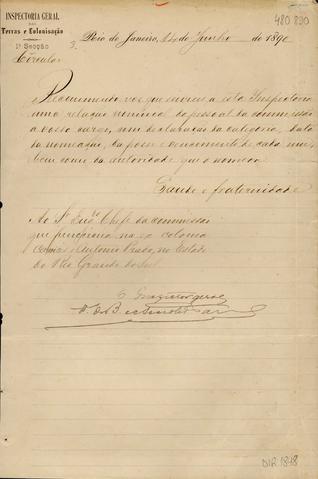 INSPECTORIA GERAL
DAS
Terras e Colonisação
1ª Secção
Circular
480 890
Rio de Janeiro, 14 de Junho de 1890
Recommendo-vos que envieis a esta Inspectoria
uma relação nominal do pessoal da commissão
a vosso cargo, com declaração da categoria, data
da nomeação, da posse e vencimento de cada um,
bem como da autoridade que o nomeou.
Saude e fraternidade
Ao Sr. Engº Chefe da commissão
que funcciona na ex colonia
Caxias e Antonio Prado, no Estado
do Rio Grande do Sul.
O Inspector geral
DIR 1848